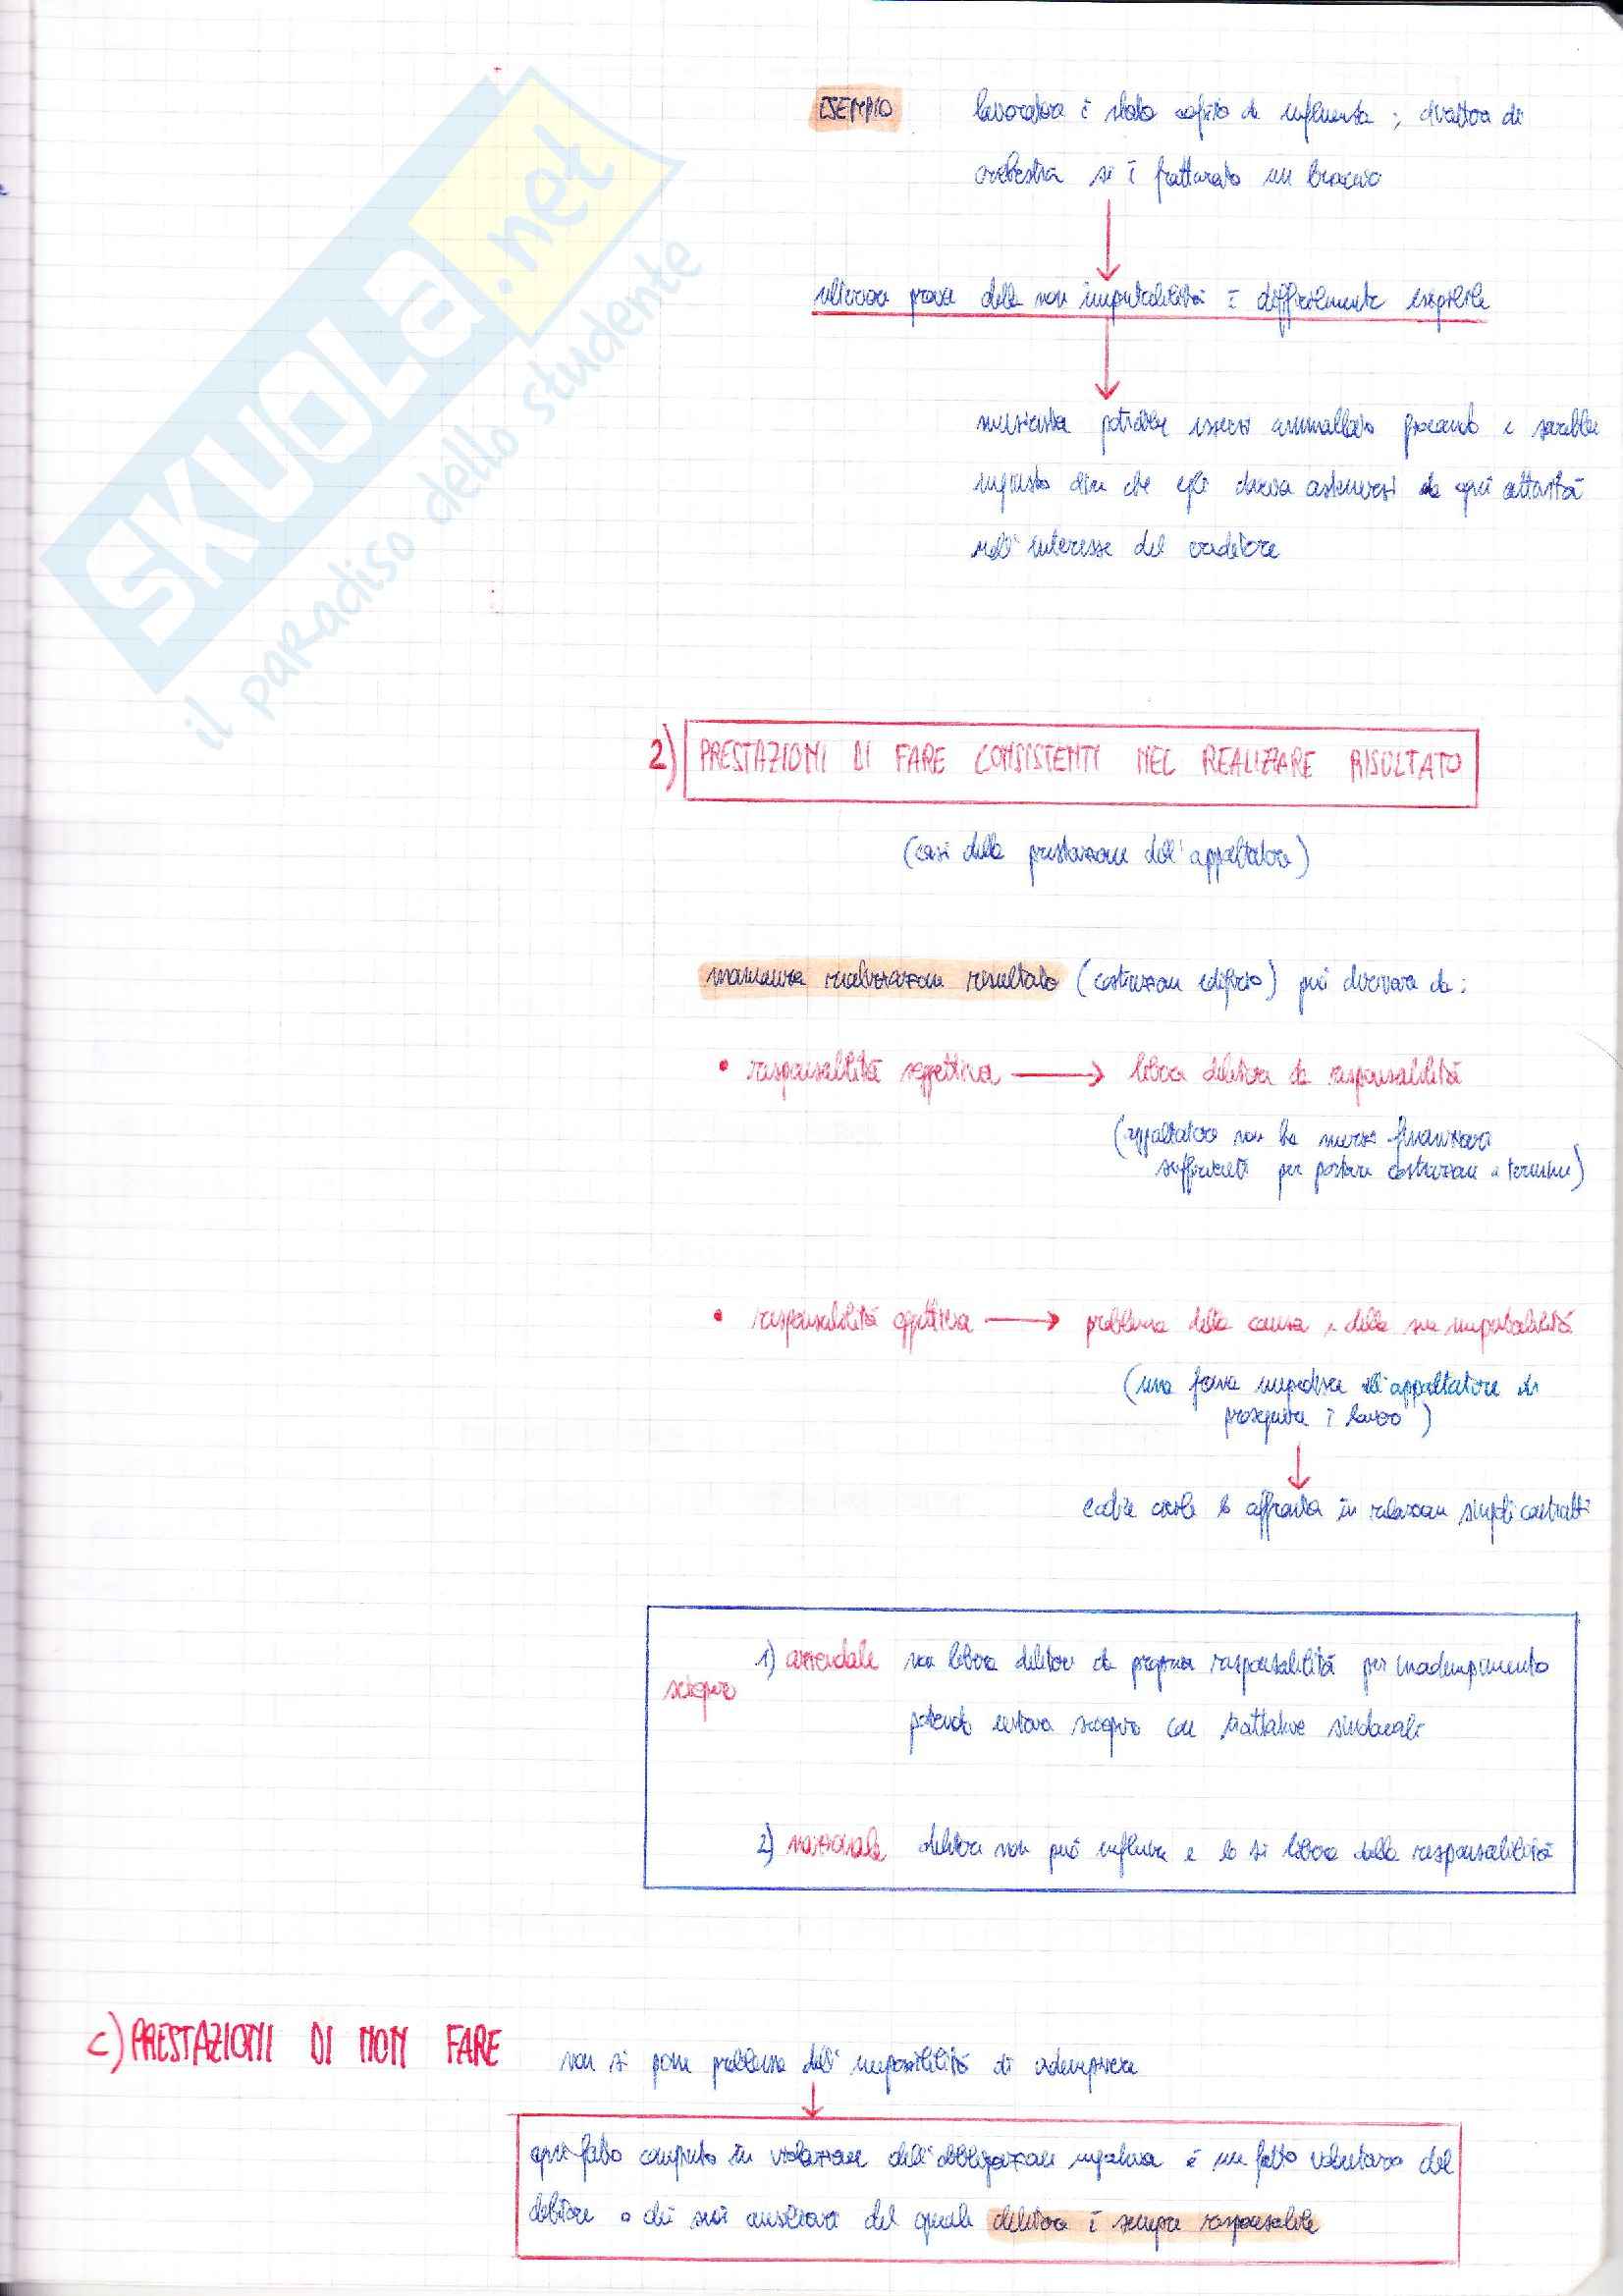 ESEMPIO lavoratore è stato colpito da influenza ; direttore di
orchestra si è fratturato un braccio
ulteriore prova della non imputabilità è difficilmente esigibile
musicista potrebbe essersi ammalato giocando e sarebbe
ingiusto dire che egli doveva astenersi da ogni attività
nell'interesse del creditore
SKUOLA.net
il paradiso dello studente
2) PRESTAZIONI DI FARE CONSISTENTI NEL REALIZZARE RISULTATO
(casi della prestazione dell'appaltatore)
mancanza realizzazione risultato (costruzione edificio) può derivare da:
• responsabilità soggettiva → libera debitore da responsabilità
(appaltatore non ha mezzi finanziari
sufficienti per portare costruzione a termine)
• responsabilità oggettiva → problema della causa e della sua imputabilità
(una frana impedisce all'appaltatore di
proseguire i lavori)
codice civile lo affronta in relazione singoli contratti
sciopero 1) aziendale non libera debitore da propria responsabilità per inadempimento
potendo evitare sciopero con trattative sindacali
2) nazionale debitore non può influire e lo si libera dalla responsabilità
c) PRESTAZIONI DI NON FARE non si pone problema dell'impossibilità di adempiere
ogni fatto compiuto in violazione dell'obbligazione negativa è un fatto volontario del
debitore o di suoi ausiliari del quale debitore è sempre responsabile